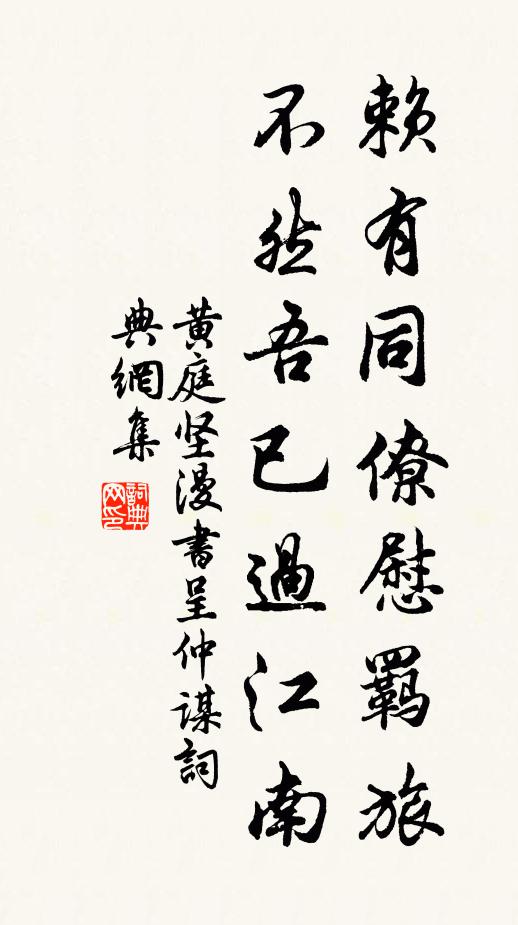 赖有同僚慰羁旅
不然吾已過江南
黄庭坚漫書呈仲谋詞
典網集
詞典
网印